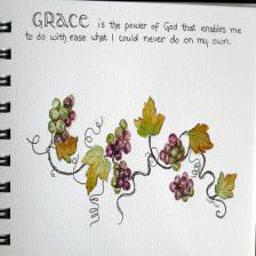 GRACE is the power of God that enables me
to do with ease what I could never do on my own.